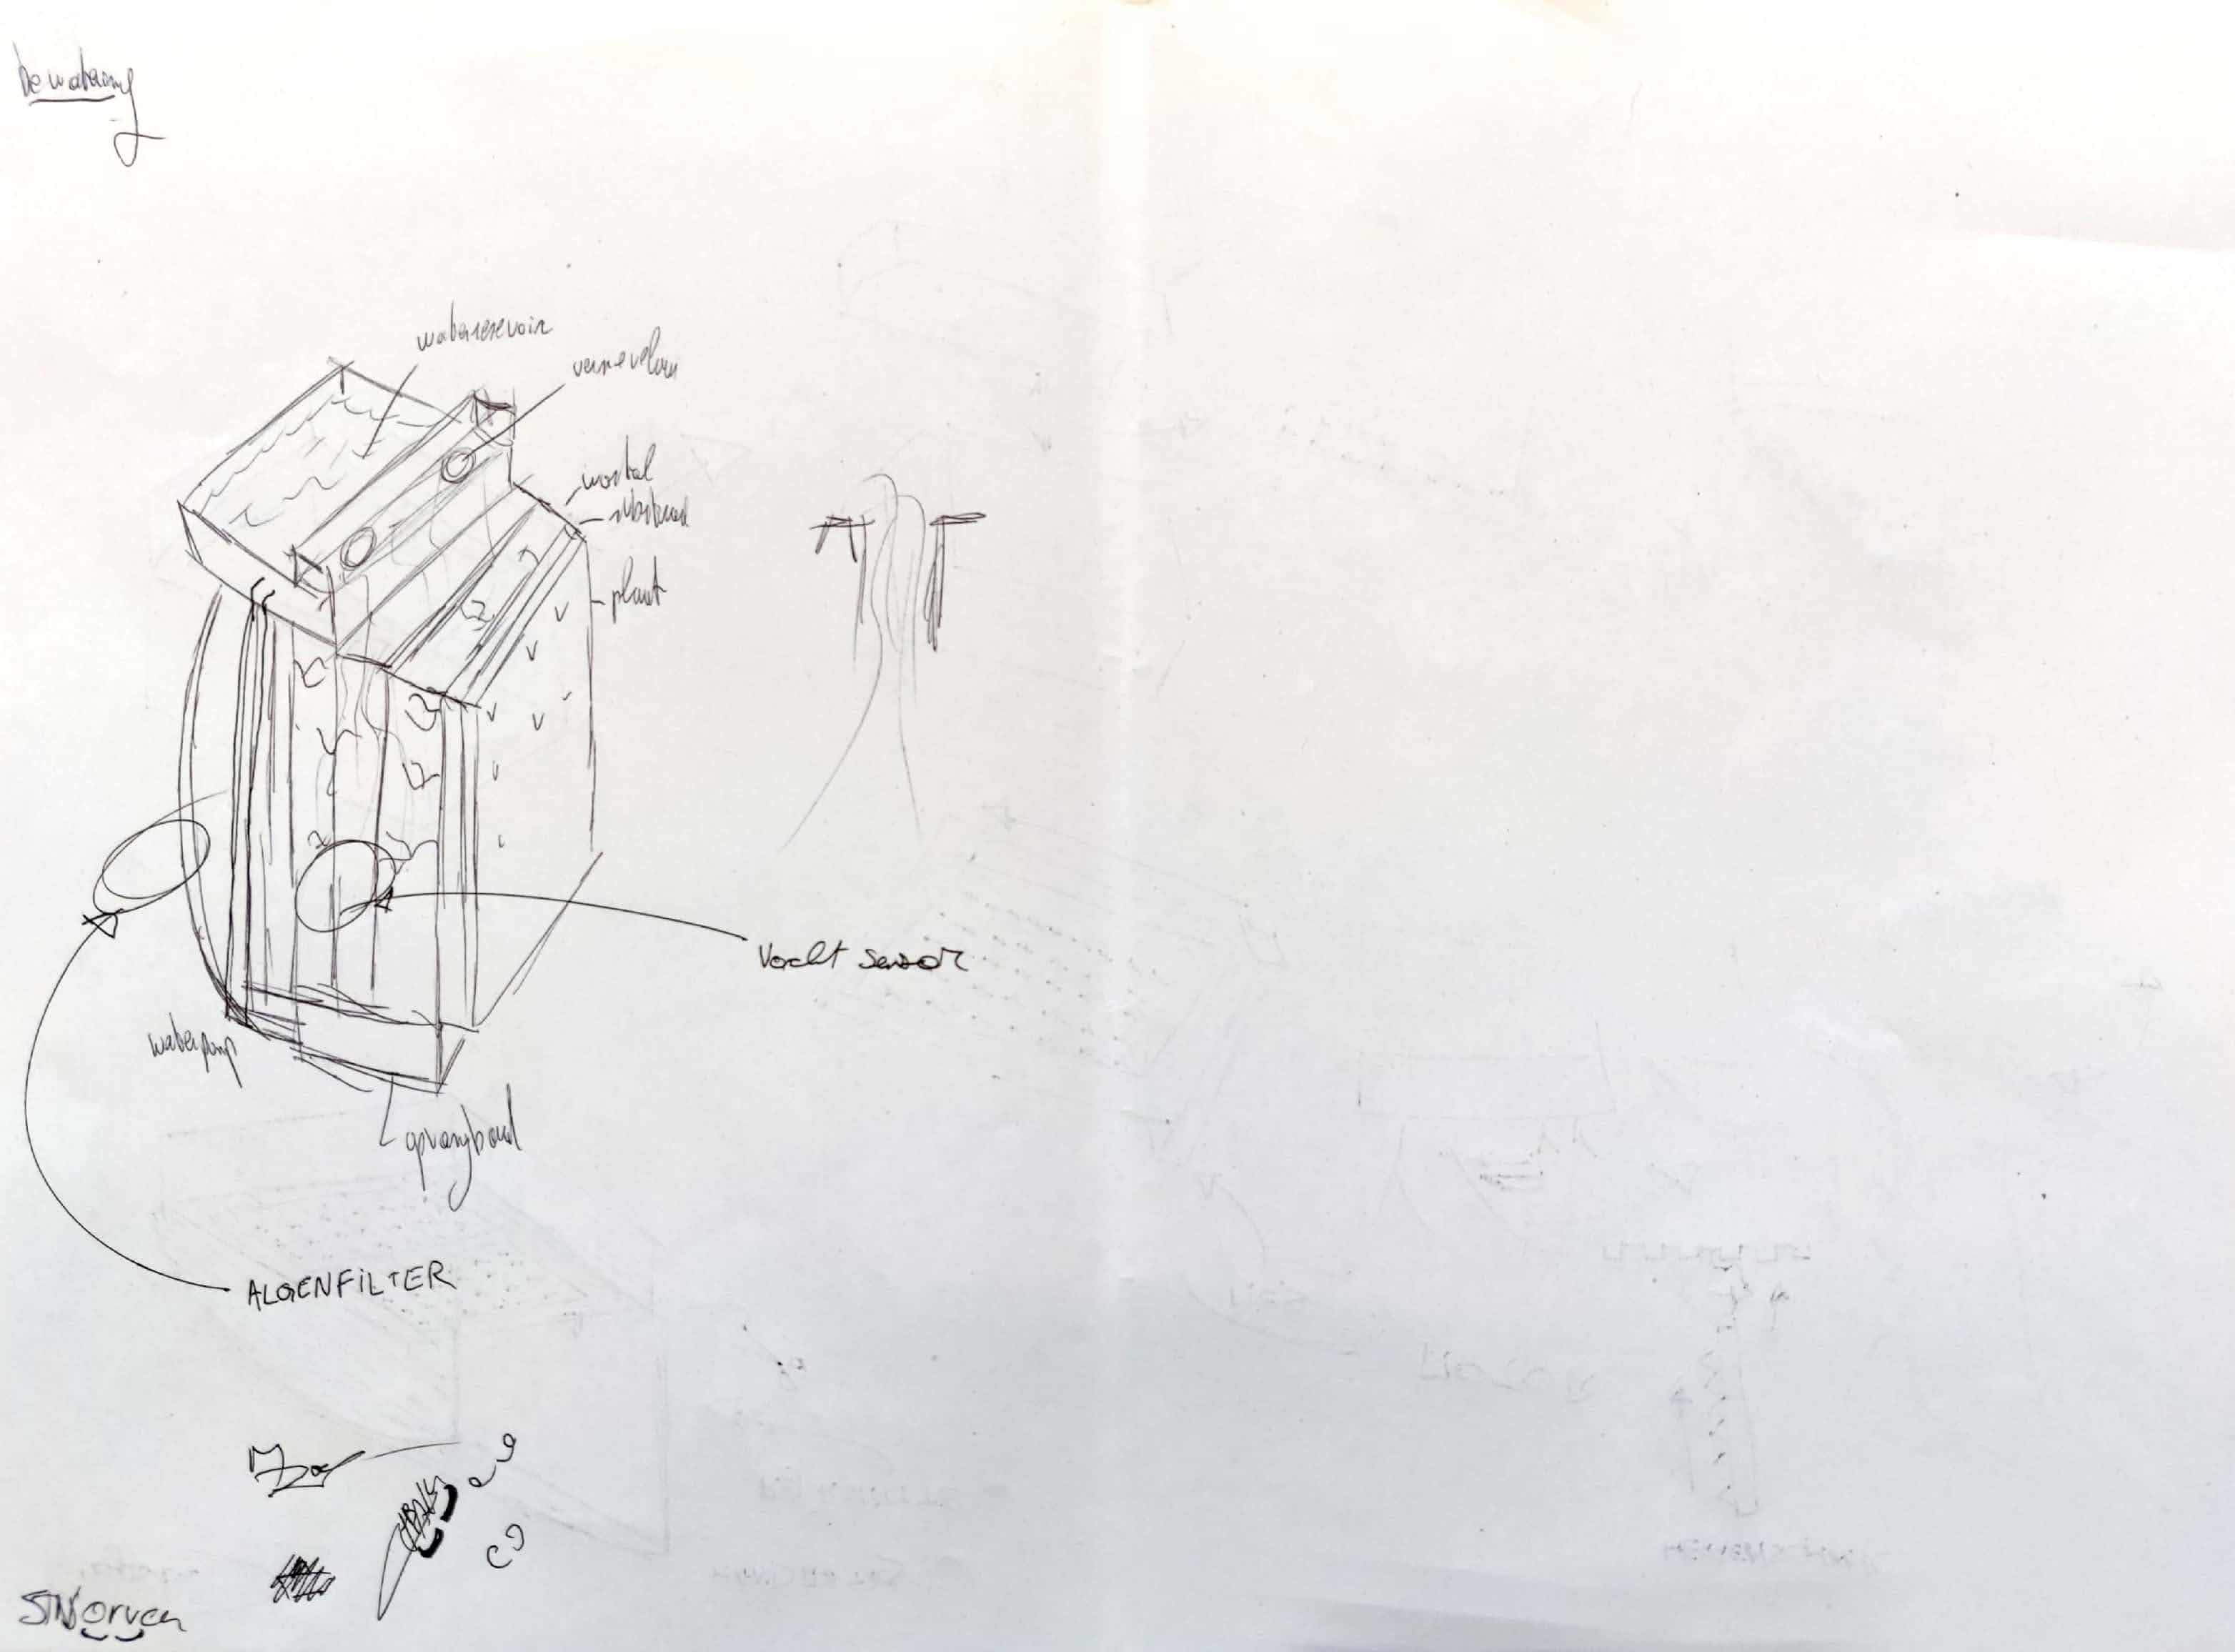 bewatering
waterresevoir
vernevelaar
wortel
substraat
plant
Vocht sensor
waterpomp
opvangband
ALGENFILTER